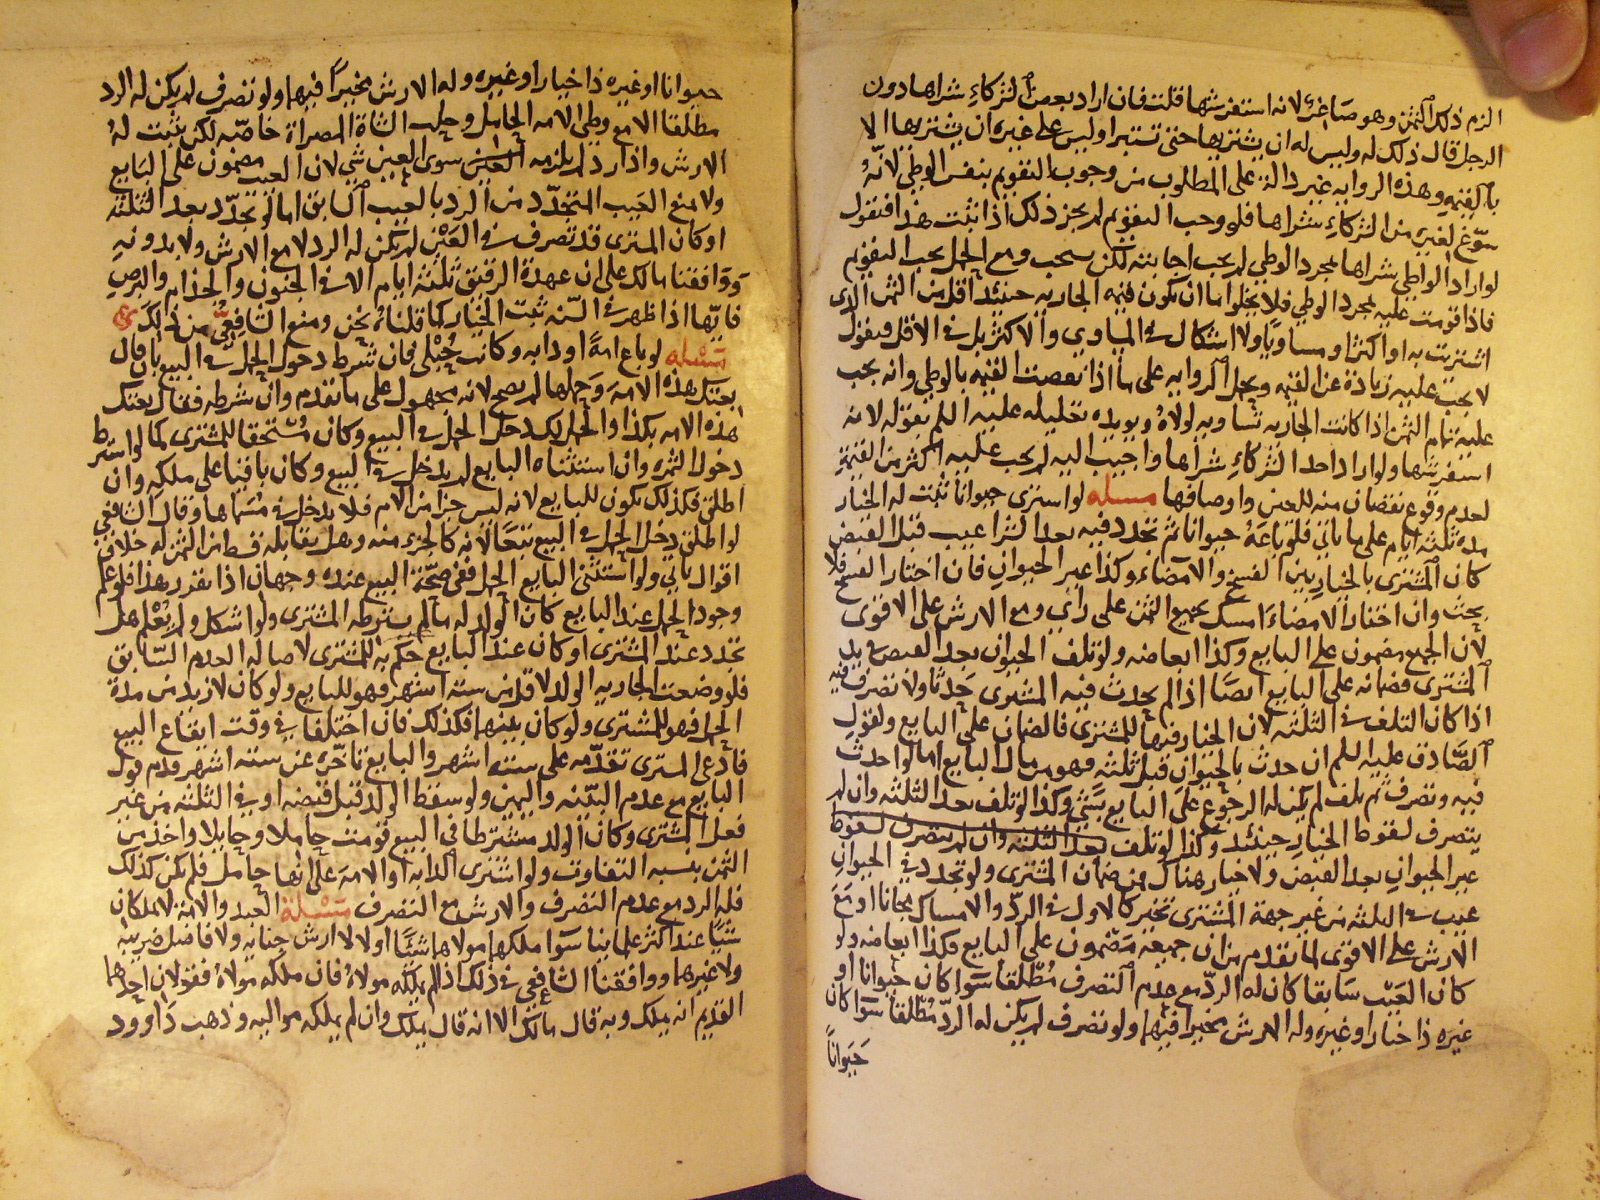 الزم ذلك الثمن وهو صاغر لانه استفرشها قلت فان اراد بعض الشركاء شراها دون
الرجل قال ذلك له وليس له ان يشتريها حتى تستبرا وليس على غيره ان يشتريها الا
بالقيمة وهذه الرواية غير دالة على المطلوب من وجوب التقويم بنفس الوطي لانه
سوغ لغيره من الشركاء شراها فلو وجب التقويم لم يجز ذلك اذا ثبت هذا فنقول
لو اراد الواطي شراها بمجرد الوطي لم يجب اجابته لكن يستحب ومع الحمل يجب التقويم
فاذا قومت عليه بمجرد الوطي فلا يخلوا اما ان يكون قيمة الجارية حينئذ اقل من الثمن الذي
اشتريت به او اكثر او مساويا ولا اشكال في المساوي والاكثر بل في الاقل فنقول
لا يجب عليه زيادة عن القيمة ويحمل الرواية على ما اذا نقصت القيمة بالوطي وانه يجب
عليه تمام الثمن اذا كانت الجارية تساويه لولاه ويويده تعليله عليه السلم بقوله لانه
استفرشها ولو اراد احد الشركاء شراها واجيب اليه لم يجب عليه اكثر من القيمة
لعدم وقوع نقصان منه للعين واوصافها مسله لو اشترى حيوانا ثبت له الخيار
مدة ثلثة ايام على ما ياتي فلو باعه حيوانا ثم تجدد فيه بعد الشرا عيب قبل القبض
كان المشترى بالخيار بين الفسخ والامضاء وكذا غير الحيوان فان اختار الفسخ فلا
بحث وان اختار الامضاء امسك بجميع الثمن على راي ومع الارش على الاقوى
لان الجميع مضمون على البايع وكذا ابعاضه ولو تلف الحيوان بعد القبض في يد
المشترى فضمانه على البايع ايضا اذا لم يحدث فيه المشترى حدثا ولا تصرف فيه
اذا كان التلف في الثلثة لان الخيار فيها للمشترى فالضمان على البايع ولقول
الصادق عليه السلم ان حدث بالحيوان قبل ثلثة فهو من مال البايع اما لو احدث
فيه وتصرف ثم تلف لم يكن له الرجوع على البايع بشي وكذا لو تلف بعد الثلثة وان لم
يتصرف لسقوط الخيار حينئذ وكذا لو تلف بعد الثلثة وان لم يتصرف لسقوط
غير الحيوان بعد القبض ولا خيار هناك من ضمان المشترى ولو تجدد في الحيوان
عيب في الثلثة من غير جهة المشترى تخير كالاول في الرد والامساك مجانا او مع
الارش على الاقوى لما تقدم من ان جميعه مضمون على البايع فكذا ابعاضه ولو
كان العيب سابقا كان له الرد مع عدم التصرف مطلقا سوا كان حيوانا او
غيره ذا خيار او غيره وله الارش مخيرا فيهما ولو تصرف لم يكن له الرد مطلقا سوا كان
حيوانا
حيوانا او غيره ذا خيار او غيره وله الارش مخيرا فيهما ولو تصرف لم يكن له الرد
مطلقا الا مع وطي الامة الحامل وحلب الشاة المصراة خاصة لكن يثبت له
الارش واذا رد لم يلزمه العيب سوى العين شي لان العيب مضمون على البايع
ولا منع العيب المتجدد من الرد بالعيب السابق اما لو تجدد بعد الثلثة
او كان المشترى قد تصرف في العين لم يكن له الرد لا مع الارش ولا بدونه
ووافقنا مالك على ان عهدة الرقيق ثلثة ايام الا في الجنون والجذام والبرص
فانها اذا ظهر في السنة ثبت الخيار كما قلناه نحن ومنع الشافعي من ذلك
مسله لو باع امة او دابة وكانت حبلى فان شرط دخول الحمل في البيع بان قال
بعتك هذه الامة وحملها لم يصح لانه مجهول على ما تقدم وان شرطه فقال بعتك
هذه الامة بكذا والحمل لك دخل الحمل في البيع وكان مستحقا للمشترى كما لو اشترط
دخول الثمرة وان استثناه البايع لم يدخل في البيع وكان باقيا على ملكه وان
اطلق فكذلك يكون للبايع لانه ليس جزا من الام فلا يدخل في مسماها وقال الشافعي
لو اطلق دخل الحمل في البيع تبعا لانه كالجزء منه وهل يقابله قسط من الثمن له خلاف
اقوال ياتي ولو استثنى البايع الحمل ففي صحة البيع عنده وجهان اذا تقرر هذا فلو علم
وجود الحمل عند البايع كان الولد له ما لم يشترطه المشترى ولو اشكل ولم يعلم هل
تجدد عند المشترى او كان عند البايع حكم به للمشترى لاصالة العدم السابق
فلو وضعت الجارية الولد لاقل من ستة اشهر فهو للبايع ولو كان لازيد من مدة
الحمل فهو للمشترى ولو كان بينهما فكذلك فان اختلفا في وقت ايقاع البيع
فادعى المشترى تقدمه على ستة اشهر والبايع تاخره عن ستة اشهر قدم قول
البايع مع عدم البينة واليمين ولو سقط الولد قبل قبضه او في الثلثة من غير
فعل المشترى وكان الولد مشترطا في البيع قومت حاملا وحايلا واخذ من
الثمن بنسبة التفاوت ولو اشترى الدابة او الامة على انها حامل فلم يكن كذلك
فله الرد مع عدم التصرف والارش مع التصرف مسلة العبد والامة لا يملكان
شيا عند اكثر علماينا سوا ملكهما مولاهما شيئا او لا لا ارش جناية ولا فاضل ضريبة
ولا غيرهما ووافقنا الشافعي في ذلك اذا لم يملكه مولاه فان ملكه مولاه فقولان احدهما
القديم انه يملك وبه قال مالك الا انه قال يملك وان لم يملكه مواليه وذهب داوود